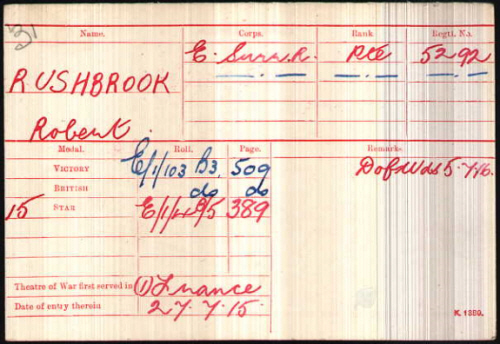 31
Name. Corps. Rank. Regtl. No.
RUSHBROOK E. Surr. R. Pte 5292
Robert.
Medal. Roll. Page. Remarks.
VICTORY E/1/103 B3. 509 D of Wds 5.7.16.
BRITISH do do
15 STAR 389
Theatre of War first served in (1) France
Date of entry therein 27.7.15.
K. 1380.